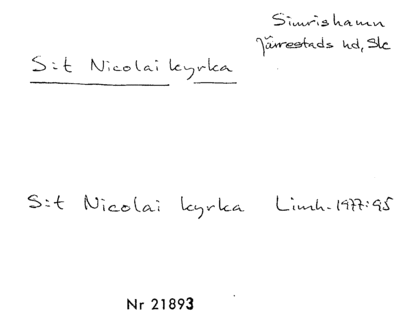 Simrishamn
Järrestads hd, Sk
S:t Nicolai kyrka
S:t Nicolai kyrka Limh. 1977:95
Nr 21893